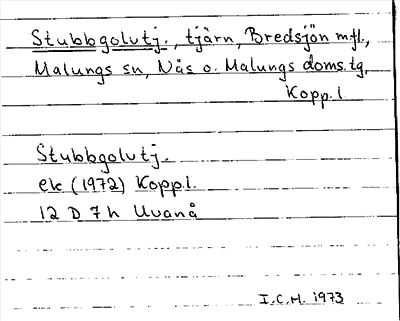 Stubbgolvtj., tjärn, Bredsjön mfl.,
Malungs sn, Nås o. Malungs doms.tg,
Kopp.l.
Stubbgolvtj.
ek (1972) Kopp.l.
12 D 7h Uvanå
I.C.H. 1973